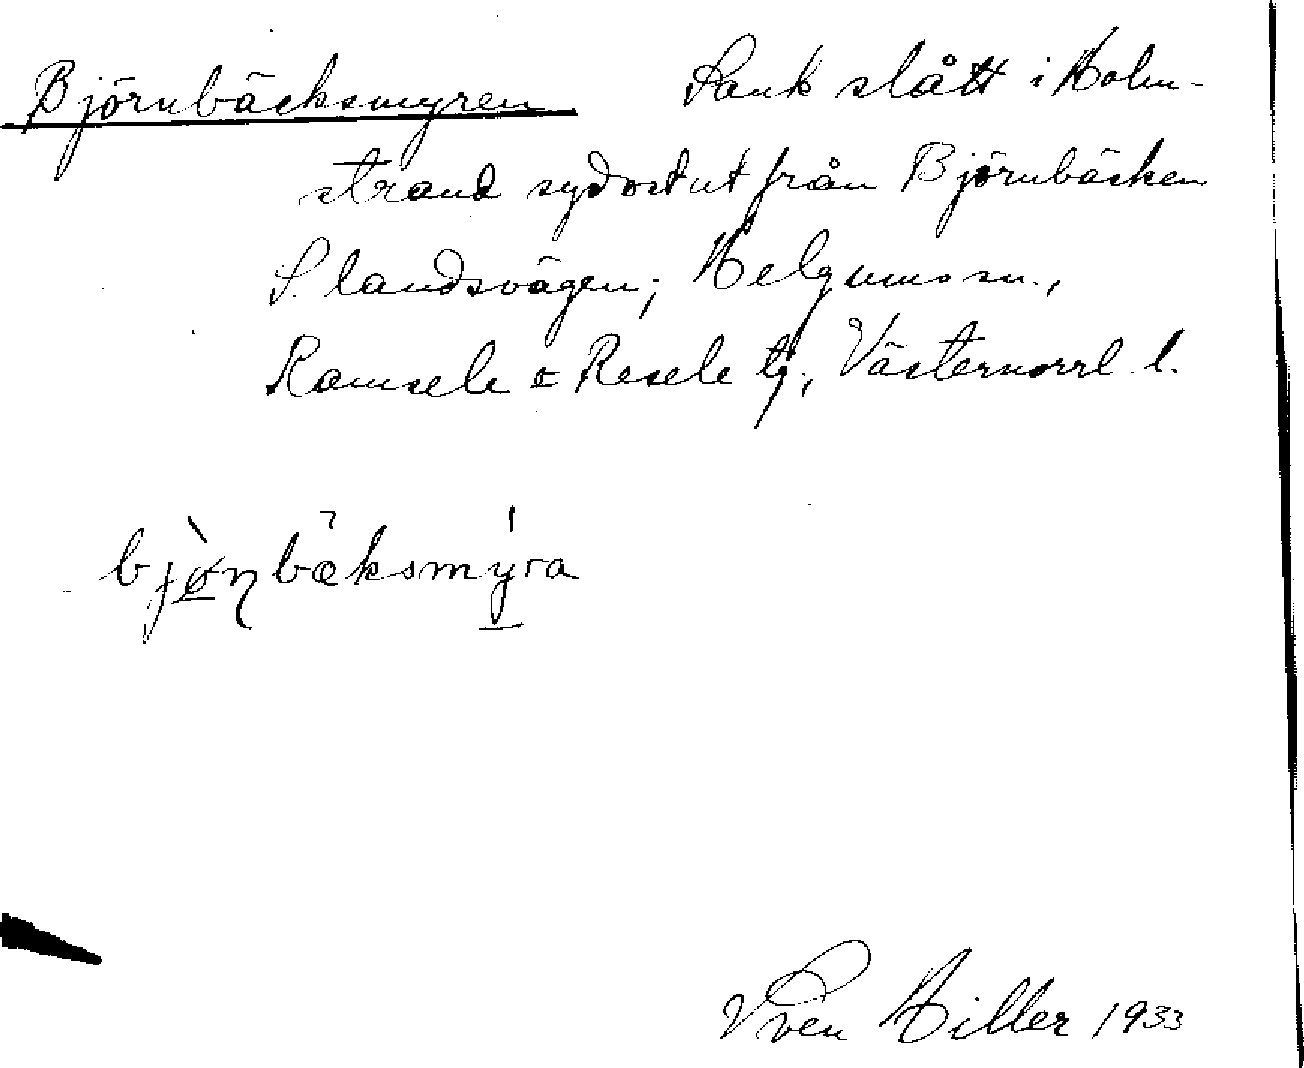 Björnbäcksmyren Sank slått i Holm-
strand sydost ut från Björnbäcken
S. landsvägen; Helgums sn.,
Ramsele o Resele tg., Västernorrl. l.
bjø̀ṇbæksmýra
Sven Hiller 1933